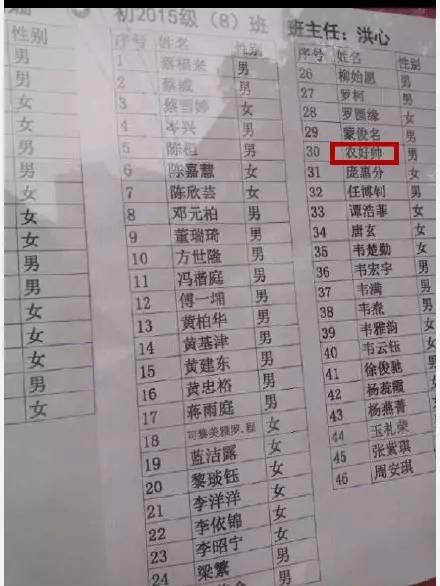 性别
男
男
女
女
男
男
女
女
女
男
男
女
女
女
男
女
初2015级（8）班 班主任：洪心
序号 姓名 性别
1 男
2 蔡威 男
3 蔡雪婷 女
4 岑兴 男
5 陈桓 男
6 陈嘉慧 女
7 陈欣芸 女
8 邓元柏 男
9 董瑞琦 男
10 方世隆 男
11 冯楷庭 男
12 傅一埔 男
13 黄柏华 男
14 黄基津 男
15 黄建东 男
16 黄忠裕 男
17 蒋雨庭 男
18 女
19 蓝洁露 女
20 黎琰钰 女
21 李洋洋 女
22 李依锦 女
23 李昭宁 女
24 梁繁 男
男
序号 姓名 性别
26 柳始愿 男
27 罗柯 男
28 罗圆缘 女
29 蒙俊名 男
30 农好帅 男
31 庞惠分 女
32 任博钊 男
33 谭浩菲 女
34 唐玄 女
35 韦楚勤 男
36 韦宏宇 男
37 韦满
38 韦焘
39 韦雅韵
40 韦云钰
41 徐俊驰
42 杨蕊霞
43 杨燕菁
44 玉礼荣
45 张紫琪
46 周安琪